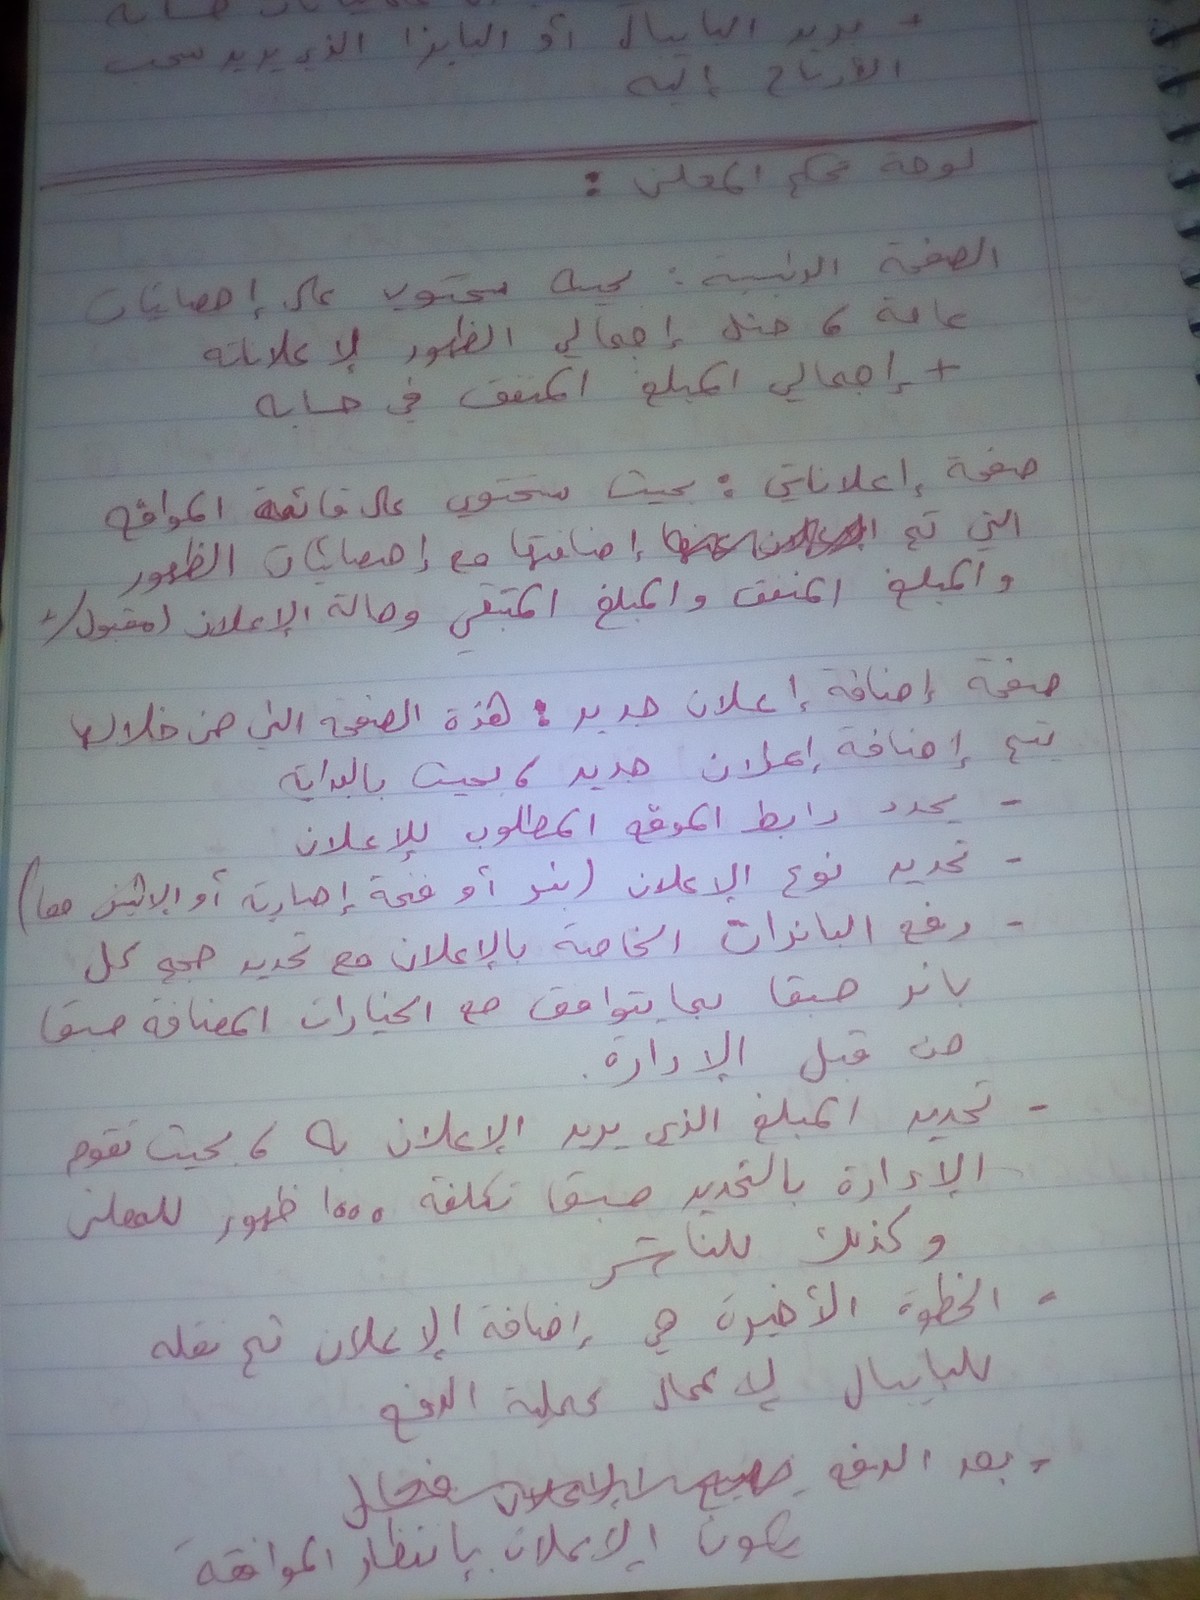 + بريد البايبال أو البايزا الذي يريد سحب
الأرباح إليه
لوحة تحكم المعلن :
الصفحة الرئيسية : بحيث ستحتوي على إحصائيات
عامة ، مثل إجمالي الظهور لإعلاناته
+ إجمالي المبلغ المنفق في حسابه
صفحة إعلاناتي : بحيث ستحتوي على قائمة المواقع
التي تم إضافتها مع إحصائيات الظهور
والمبلغ المنفق والمبلغ المتبقي وحالة الإعلان (مقبول/
صفحة إضافة إعلان جديد : هذة الصفحة التي من خلالها
يتم إضافة إعلان جديد ، بحيث بالبداية
- يحدد رابط الموقع المطلوب للإعلان
- تحديد نوع الإعلان (بنر أو فتحة إجبارية أو الإثنين معا)
- رفع البانرات الخاصة بالإعلان مع تحديد حجم كل
بانر مسبقا بما يتوافق مع الخيارات المضافة مسبقا
من قبل الإدارة .
- تحديد المبلغ الذي يريد الإعلان به ، بحيث تقوم
الإدارة بالتحديد مسبقا تكلفة 1000 ظهور للمعلن
وكذلك للناشر
- الخطوة الأخيرة هي إضافة الإعلان ثم نقله
للبايبال لإكمال عملية الدفع
- بعد الدفع
يكون الإعلان بإنتظار الموافقة